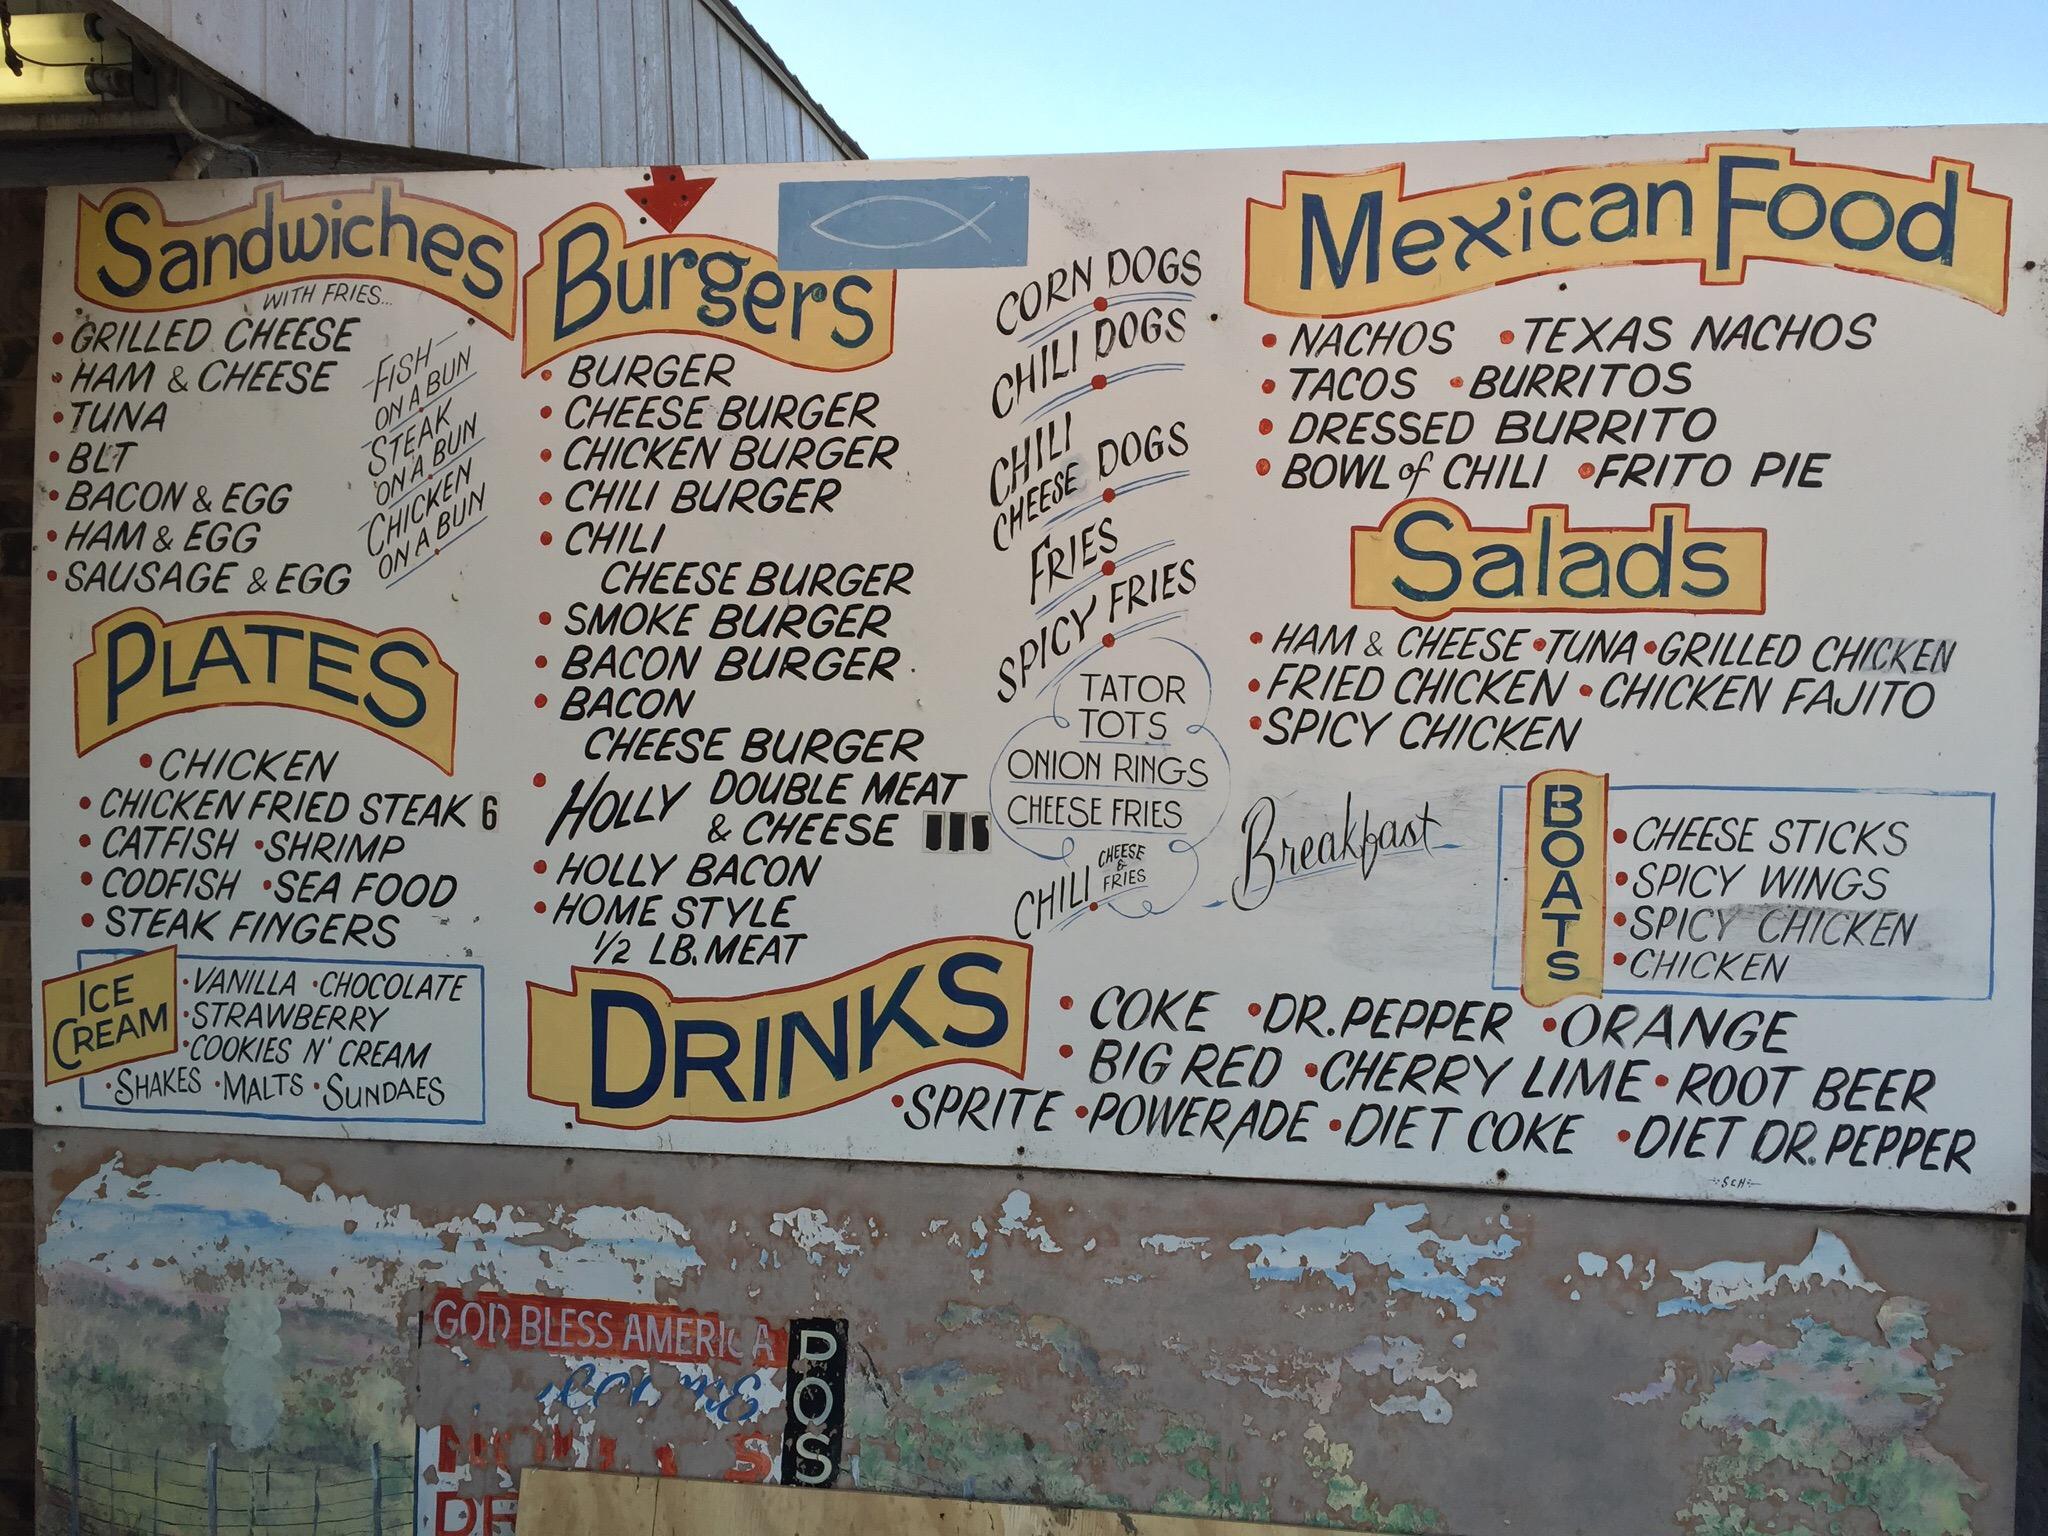 Sandwiches
WITH FRIES...
• GRILLED CHEESE
• HAM & CHEESE
• TUNA
• BLT
• BACON & EGG
• HAM & EGG
• SAUSAGE & EGG
FISH
ON A BUN
STEAK
ON A BUN
CHICKEN
ON A BUN
PLATES
• CHICKEN
• CHICKEN FRIED STEAK 6
• CATFISH • SHRIMP
• CODFISH • SEA FOOD
• STEAK FINGERS
ICE
CREAM
• VANILLA • CHOCOLATE
• STRAWBERRY
• COOKIES N' CREAM
• SHAKES • MALTS • SUNDAES
Burgers
• BURGER
• CHEESE BURGER
• CHICKEN BURGER
• CHILI BURGER
• CHILI
CHEESE BURGER
• SMOKE BURGER
• BACON BURGER
• BACON
CHEESE BURGER
• HOLLY DOUBLE MEAT
& CHEESE
• HOLLY BACON
• HOME STYLE
1/2 LB. MEAT
CORN DOGS
CHILI DOGS
CHILI
CHEESE DOGS
FRIES
SPICY FRIES
TATOR
TOTS
ONION RINGS
CHEESE FRIES
CHILI CHEESE
&
FRIES
Mexican Food
• NACHOS • TEXAS NACHOS
• TACOS • BURRITOS
• DRESSED BURRITO
• BOWL of CHILI • FRITO PIE
Salads
• HAM & CHEESE • TUNA • GRILLED CHICKEN
• FRIED CHICKEN • CHICKEN FAJITO
• SPICY CHICKEN
Breakfast
BOATS
• CHEESE STICKS
• SPICY WINGS
• SPICY CHICKEN
• CHICKEN
DRINKS
• COKE • DR. PEPPER • ORANGE
• BIG RED • CHERRY LIME • ROOT BEER
• SPRITE • POWERADE • DIET COKE • DIET DR. PEPPER
GOD BLESS AMERICA